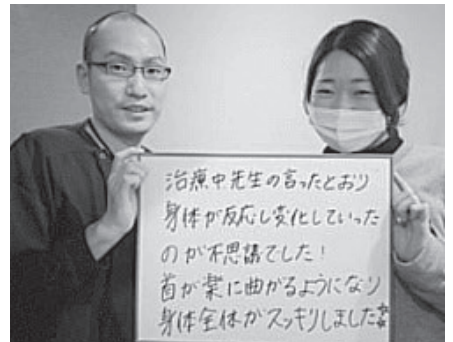 治療中先生の言ったとおり
身体が反応し変化していった
のが不思議でした!
首が楽に曲がるようになり
身体全体がスッキリしました